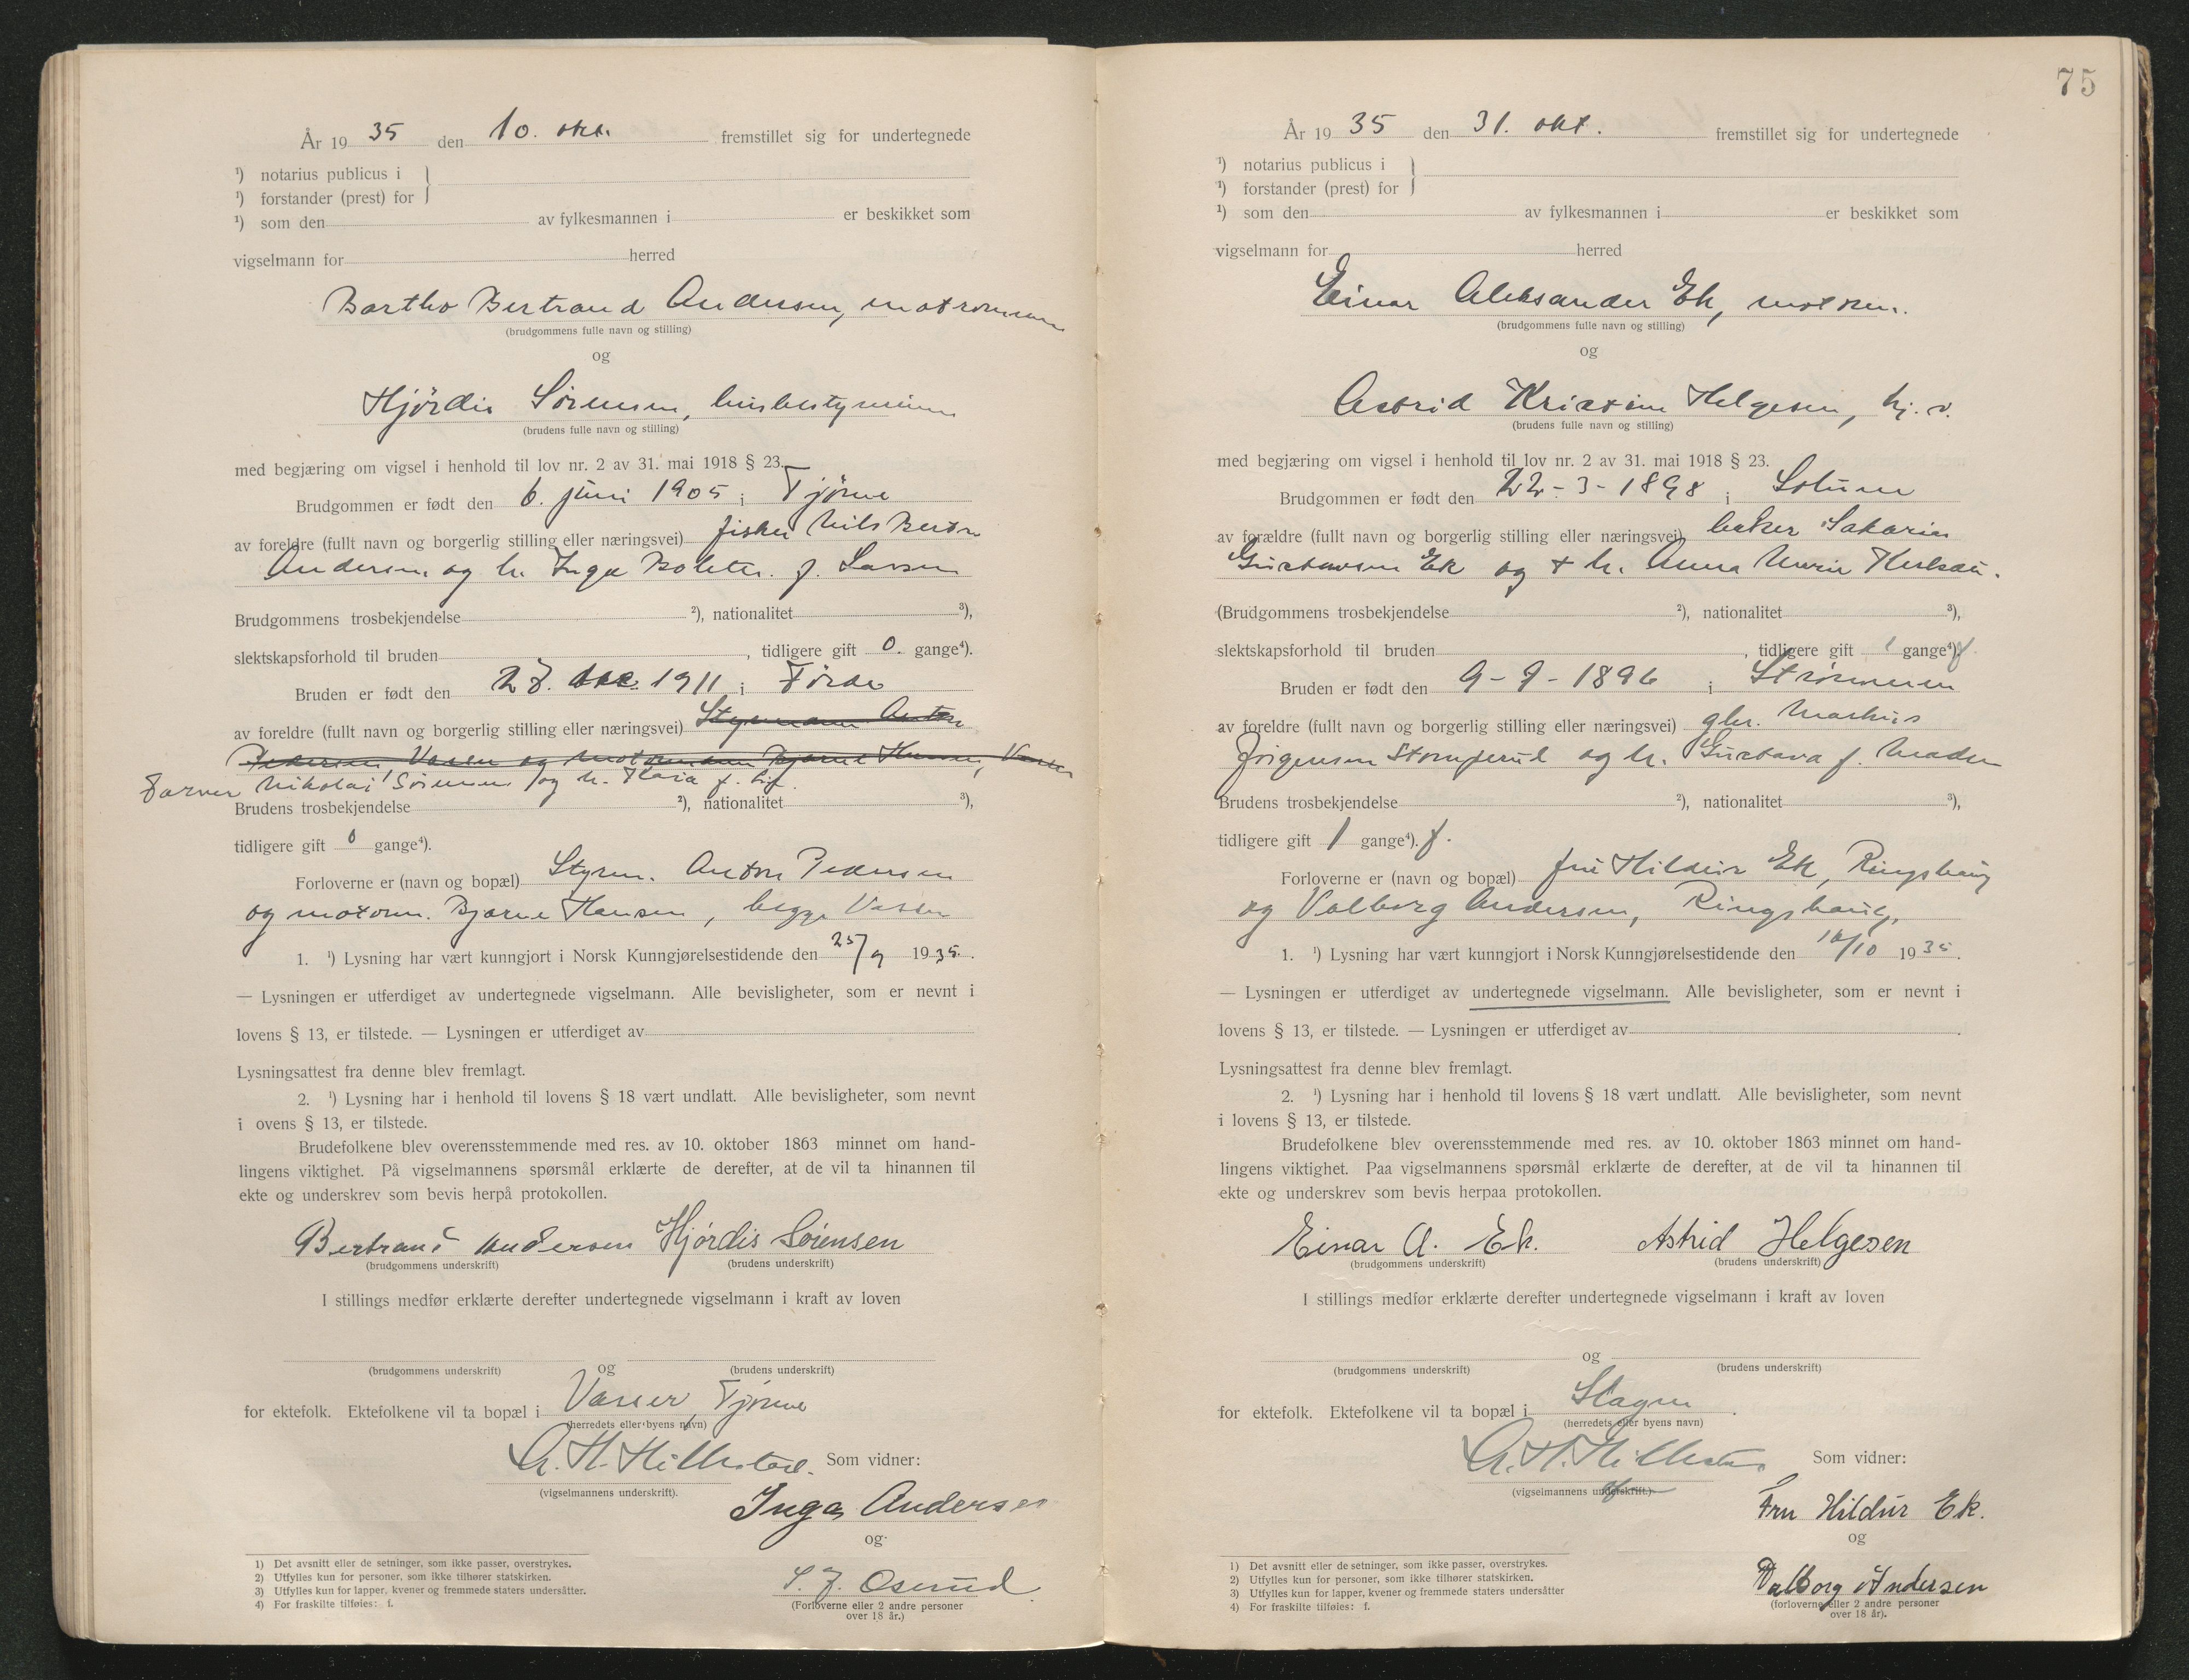 År 1935 den 10. okt. fremstillet sig for undertegnede
¹) notarius publicus i
¹) forstander (prest) for
¹) som den av fylkesmannen i er beskikket som
vigselmann for herred
Bartho Bertrand Andersen, matrosmann
(brudgommens fulle navn og stilling)
og
Hjördis Sörensen, husbestyrerinne
(brudens fulle navn og stilling)
med begjæring om vigsel i henhold til lov nr. 2 av 31. mai 1918 § 23.
Brudgommen er født den 6. juni 1905 i Tjöme
av foreldre (fullt navn og borgerlig stilling eller næringsvei) fisker Nils
Andersen og h. Inga f. Larsen
Brudgommens trosbekjendelse ²), nationalitet ³),
slektskapsforhold til bruden, tidligere gift 0. gange⁴).
Bruden er født den 1911 i Förde
av foreldre (fullt navn og borgerlig stilling eller næringsvei) Styrmann Anton
Pedersen Vasser og motormann Bjarne Hansen, Vasser
Farver Nikolai Sörensen og h.
Brudens trosbekjendelse ²), nationalitet ³),
tidligere gift 0 gange⁴).
Forloverne er (navn og bopæl) Styrm. Anton Pedersen
og motorm. Bjarne Hansen, begge Vasser
1. ¹) Lysning har vært kunngjort i Norsk Kunngjørelsestidende den 25/9 1935.
— Lysningen er utferdiget av undertegnede vigselmann. Alle bevisligheter, som er nevnt i
lovens § 13, er tilstede. — Lysningen er utferdiget av
Lysningsattest fra denne blev fremlagt.
2. ¹) Lysning har i henhold til lovens § 18 vært undlatt. Alle bevisligheter, som nevnt
i ovens § 13, er tilstede.
Brudefolkene blev overensstemmende med res. av 10. oktober 1863 minnet om hand-
lingens viktighet. På vigselmannens spørsmål erklærte de derefter, at de vil ta hinannen til
ekte og underskrev som bevis herpå protokollen.
Bertrand Andersen Hjördis Sörensen
(brudgommens underskrift) (brudens underskrift)
I stillings medfør erklærte derefter undertegnede vigselmann i kraft av loven
og
(brudgommens underskrift) (brudens underskrift)
for ektefolk. Ektefolkene vil ta bopæl i Vasser, Tjöme
(herredets eller byens navn)
A. H. Hillestad. Som vidner:
(vigselmannens underskrift).
Inga Andersen
og
S. J. Oserud
(Forloverne eller 2 andre personer
over 18 år.)
1) Det avsnitt eller de setninger, som ikke passer, overstrykes.
2) Utfylles kun for personer, som ikke tilhører statskirken.
3) Utfylles kun for lapper, kvener og fremmede staters undersåtter.
4) For fraskilte tilføies: f.
75
År 1935 den 31. okt. fremstillet sig for undertegnede
¹) notarius publicus i
¹) forstander (prest) for
¹) som den av fylkesmannen i er beskikket som
vigselmann for herred
Einar Aleksander Ek,
(brudgommens fulle navn og stilling)
og
Astrid Kristine Helgesen,
(brudens fulle navn og stilling)
med begjæring om vigsel i henhold til lov nr. 2 av 31. mai 1918 § 23.
Brudgommen er født den 22-3-1898 i Solum
av forældre (fullt navn og borgerlig stilling eller næringsvei) baker Sakarias
Gustavsen Ek og + h. Anna Marie
(Brudgommens trosbekjendelse ²), nationalitet ³),
slektskapsforhold til bruden, tidligere gift 1 gange⁴) f.
Bruden er født den 9-7-1896 i Strömmen
av foreldre (fullt navn og borgerlig stilling eller næringsvei) gbr. Markus
Jörgensen Stomperud og h. Gustava f. Madsen
Brudens trosbekjendelse ²), nationalitet ³),
tidligere gift 1 gange⁴). f.
Forloverne er (navn og bopæl) fru Hildur Ek, Ringshaug
og Valborg Andersen, Ringshaug.
1. ¹) Lysning har vært kunngjort i Norsk Kunngjørelsestidende den 16/10 1935.
— Lysningen er utferdiget av undertegnede vigselmann. Alle bevisligheter, som er nevnt i
lovens § 13, er tilstede. — Lysningen er utferdiget av .
Lysningsattest fra denne blev fremlagt.
2. ¹) Lysning har i henhold til lovens § 18 vært undlatt. Alle bevisligheter, som nevnt
i lovens § 13, er tilstede.
Brudefolkene blev overensstemmende med res. av 10. oktober 1863 minnet om hand-
lingens viktighet. Paa vigselmannens spørsmål erklærte de derefter, at de vil ta hinannen til
ekte og underskrev som bevis herpaa protokollen.
Einar A. Ek. Astrid Helgesen
(brudgommens underskrift) (brudens underskrift)
I stillings medfør erklærte derefter undertegnede vigselmann i kraft av loven
og
(brudgommens underskrift) (brudens underskrift)
for ektefolk. Ektefolkene vil ta bopæl i Slagen.
(herredets eller byens navn)
A. H. Hillestad Som vidner:
(vigselmannens underskrift.)
Fru Hildur Ek.
og
Valborg Andersen
(forloverne eller 2 andre personer
over 18 år).
1) Det avsnitt eller de setninger, som ikke passer, overstrykes.
2) Utfylles kun for personer, som ikke tilhører statskirken.
3) Utfylles kun for lapper, kvener og fremmede staters undersåtter
4) For fraskilte tilføies: f.